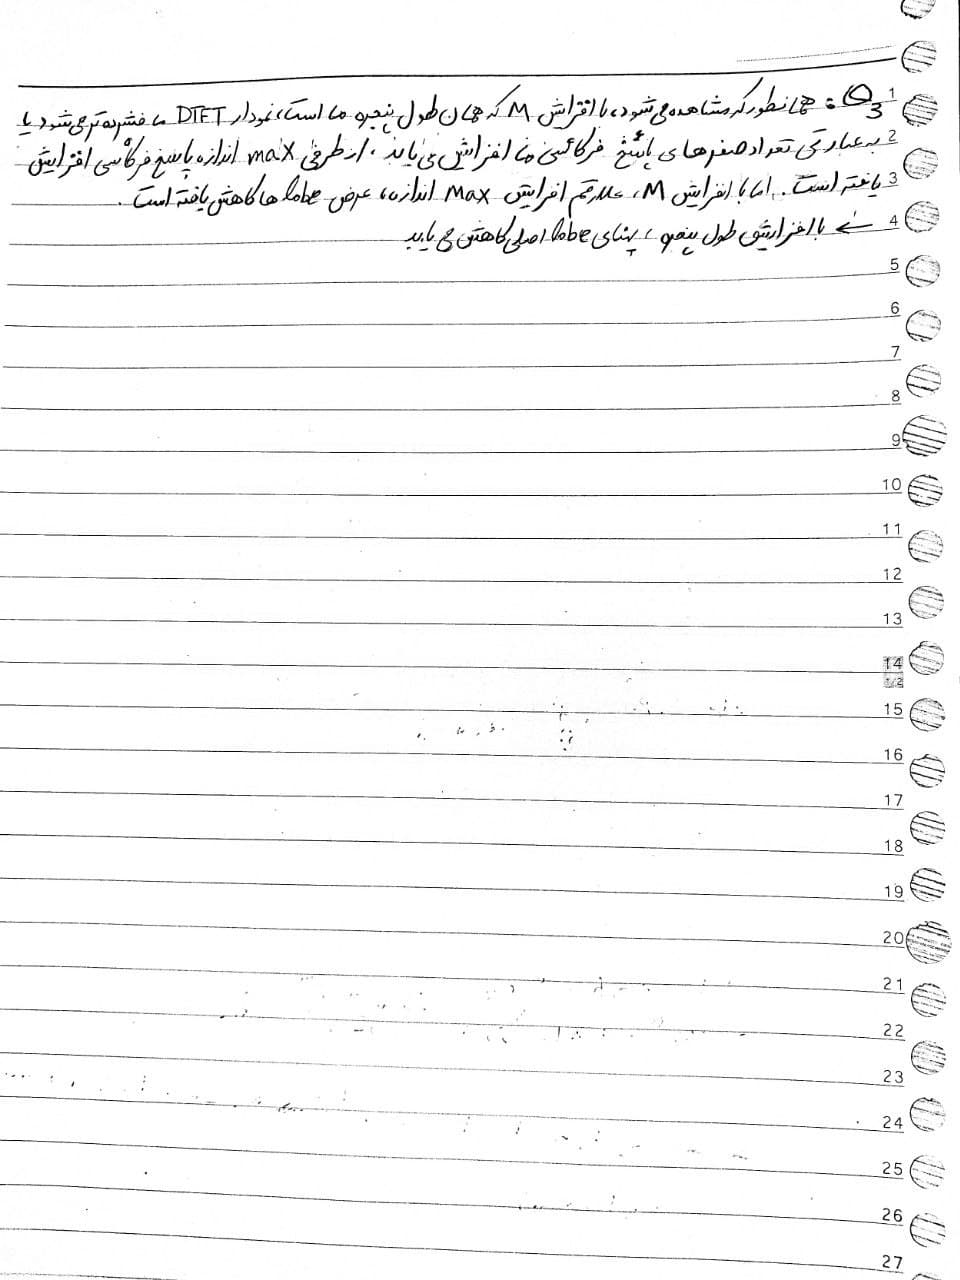 Q3: همانطور که مشاهده می‌شود، با افزایش M که همان طول پنجره ما است، نمودار DTFT ما فشرده‌تر می‌شود یا
به عبارتی تعداد صفرهای پاسخ فرکانسی ما افزایش می‌یابد، از طرفی max اندازه پاسخ فرکانسی افزایش
یافته است. اما با افزایش M، علارغم افزایش Max اندازه، عرض lobe ها کاهش یافته است.
← با افزایش طول پنجره، پهنای lobe اصلی کاهش می‌یابد
1
2
3
4
5
6
7
8
9
10
11
12
13
14
15
16
17
18
19
20
21
22
23
24
25
26
27